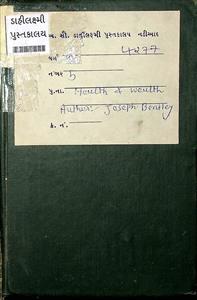 ડાહીલક્ષ્મી
પુસ્તકાલય
સ્વ. શ્રી. ડાહીલક્ષ્મી પુસ્તકાલય નડીઆદ
4277
વર્ગ
નંબર 5
પુ.નામ. Health & Wealth
Author:- Joseph Bentley
ક. નં.